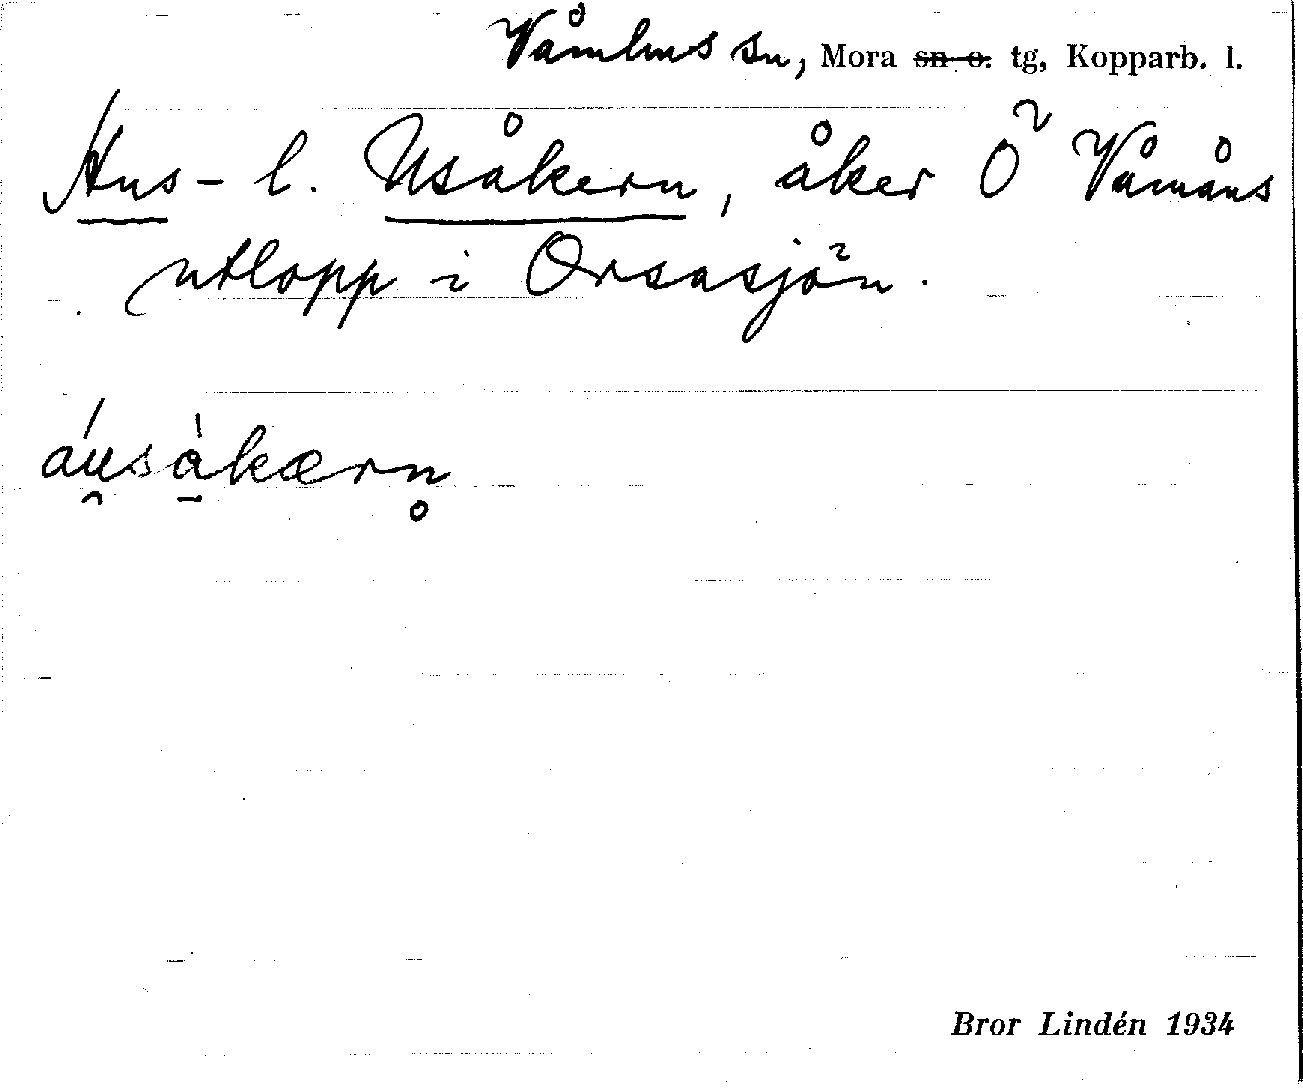 Våmhus sn, Mora sn o. tg, Kopparb. l.
Hus- l. Usåkern, åker Ö Våmåns
utlopp i Orsasjön.
áu̯sà̱kærn̥
Bror Lindén 1934